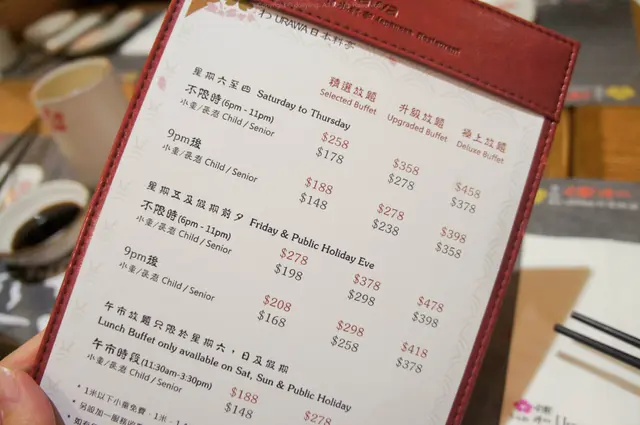 URAWA日本料亭
Japanese Restaurant
精選放題 升級放題 極上放題
Selected Buffet Upgraded Buffet Deluxe Buffet
星期六至四 Saturday to Thursday
不限時(6pm - 11pm) $258 $358 $458
小童/長者 Child / Senior $178 $278 $378
9pm後 $188 $278 $398
小童/長者 Child / Senior $148 $238 $358
星期五及假期前夕 Friday & Public Holiday Eve
不限時(6pm - 11pm) $278 $378 $478
小童/長者 Child / Senior $198 $298 $398
9pm後 $208 $298 $418
小童/長者 Child / Senior $168 $258 $378
午市放題只限於星期六，日及假期
Lunch Buffet only available on Sat, Sun & Public Holiday
午市時段(11:30am-3:30pm) $188 $278
小童/長者 Child / Senior $148
• 1米以下小童免費
• 另設加一服務